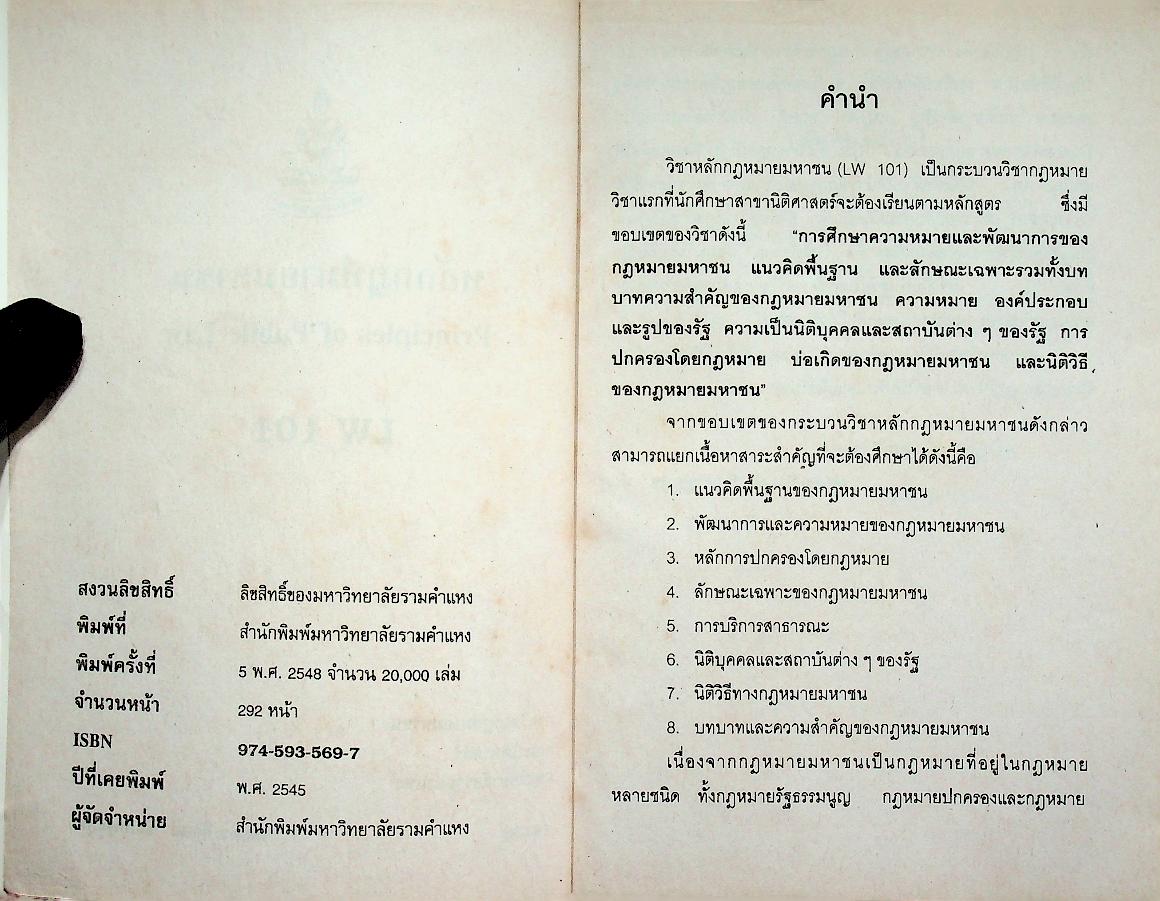 สงวนลิขสิทธิ์ ลิขสิทธิ์ของมหาวิทยาลัยรามคำแหง
พิมพ์ที่ สำนักพิมพ์มหาวิทยาลัยรามคำแหง
พิมพ์ครั้งที่ 5 พ.ศ. 2548 จำนวน 20,000 เล่ม
จำนวนหน้า 292 หน้า
ISBN 974-593-569-7
ปีที่เคยพิมพ์ พ.ศ. 2545
ผู้จัดจำหน่าย สำนักพิมพ์มหาวิทยาลัยรามคำแหง
คำนำ
วิชาหลักกฎหมายมหาชน (LW 101) เป็นกระบวนวิชากฎหมาย
วิชาแรกที่นักศึกษาสาขานิติศาสตร์จะต้องเรียนตามหลักสูตร ซึ่งมี
ขอบเขตของวิชาดังนี้ "การศึกษาความหมายและพัฒนาการของ
กฎหมายมหาชน แนวคิดพื้นฐาน และลักษณะเฉพาะรวมทั้งบท
บาทความสำคัญของกฎหมายมหาชน ความหมาย องค์ประกอบ
และรูปของรัฐ ความเป็นนิติบุคคลและสถาบันต่าง ๆ ของรัฐ การ
ปกครองโดยกฎหมาย บ่อเกิดของกฎหมายมหาชน และนิติวิธี
ของกฎหมายมหาชน"
จากขอบเขตของกระบวนวิชาหลักกฎหมายมหาชนดังกล่าว
สามารถแยกเนื้อหาสาระสำคัญที่จะต้องศึกษาได้ดังนี้คือ
1. แนวคิดพื้นฐานของกฎหมายมหาชน
2. พัฒนาการและความหมายของกฎหมายมหาชน
3. หลักการปกครองโดยกฎหมาย
4. ลักษณะเฉพาะของกฎหมายมหาชน
5. การบริการสาธารณะ
6. นิติบุคคลและสถาบันต่าง ๆ ของรัฐ
7. นิติวิธีทางกฎหมายมหาชน
8. บทบาทและความสำคัญของกฎหมายมหาชน
เนื่องจากกฎหมายมหาชนเป็นกฎหมายที่อยู่ในกฎหมาย
หลายชนิด ทั้งกฎหมายรัฐธรรมนูญ กฎหมายปกครองและกฎหมาย